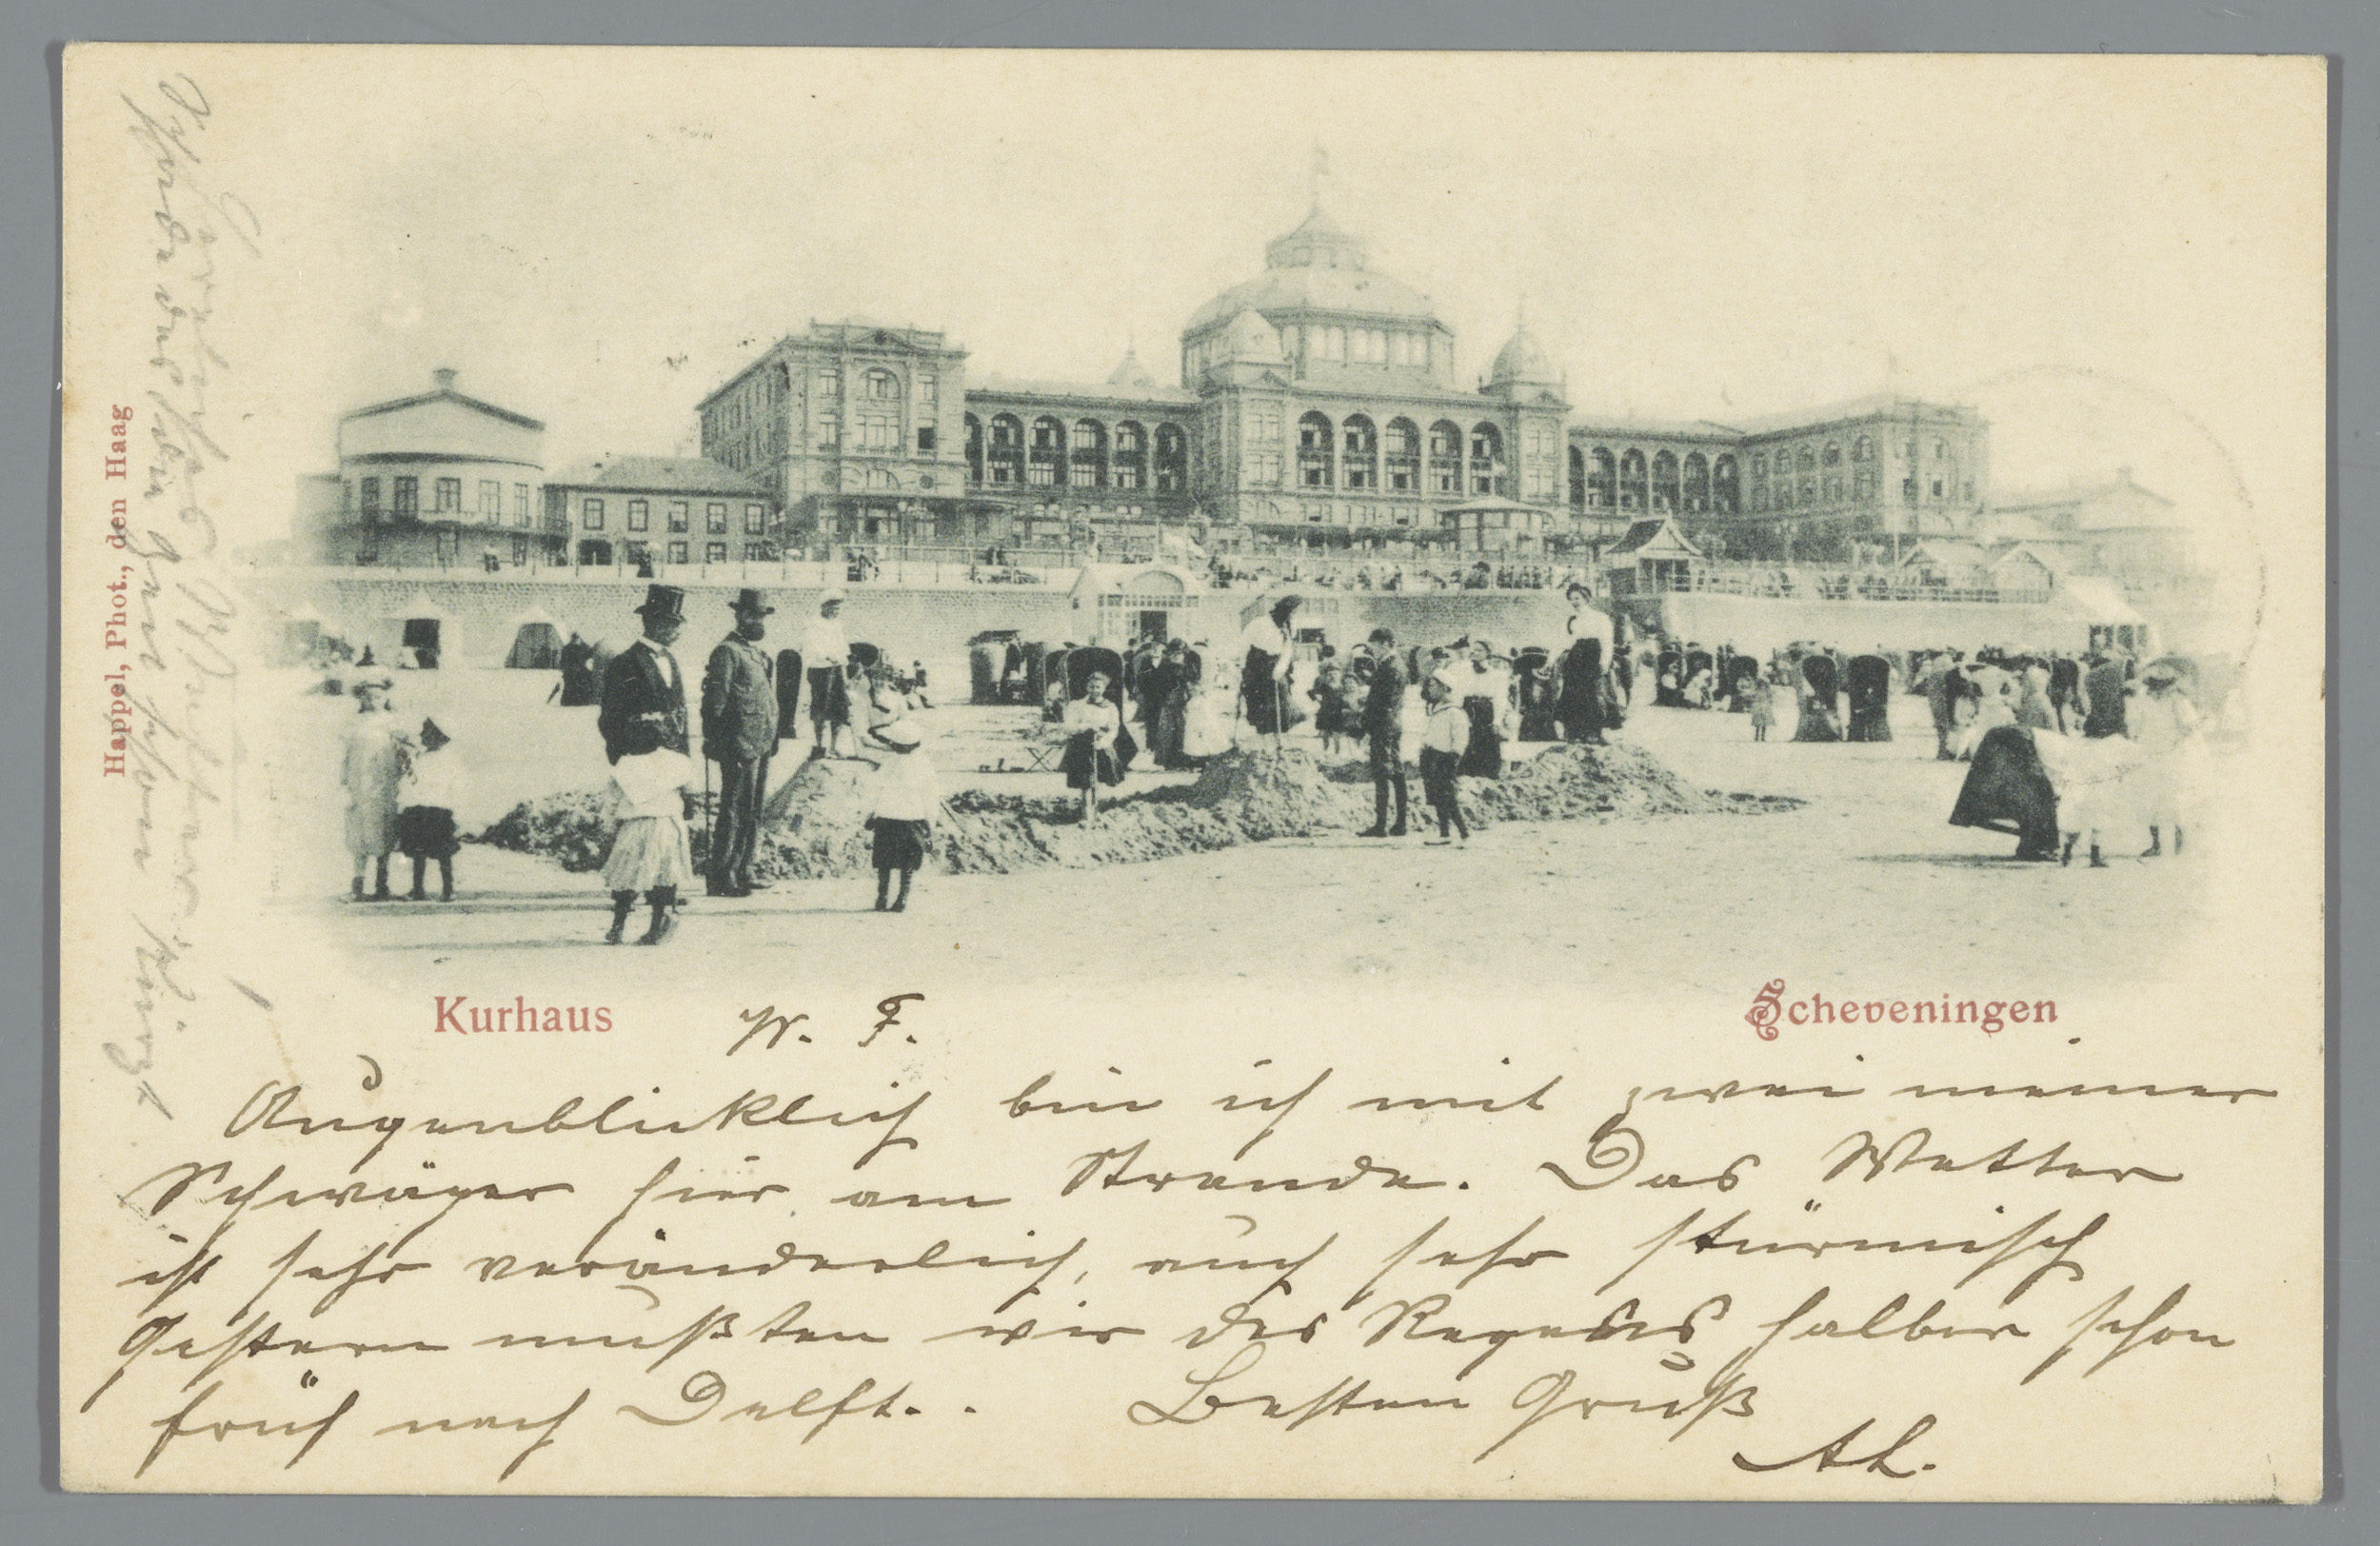 Happel, Phot., den Haag
Kurhaus
Scheveningen
W. F.
Augenblicklich bin ich mit zwei meiner
Schwäger hier am Strande. Das Wetter
ist sehr veränderlich, auch sehr stürmisch
Gestern mußten wir des Regens halber schon
früh nach Delft..
Besten Gruß